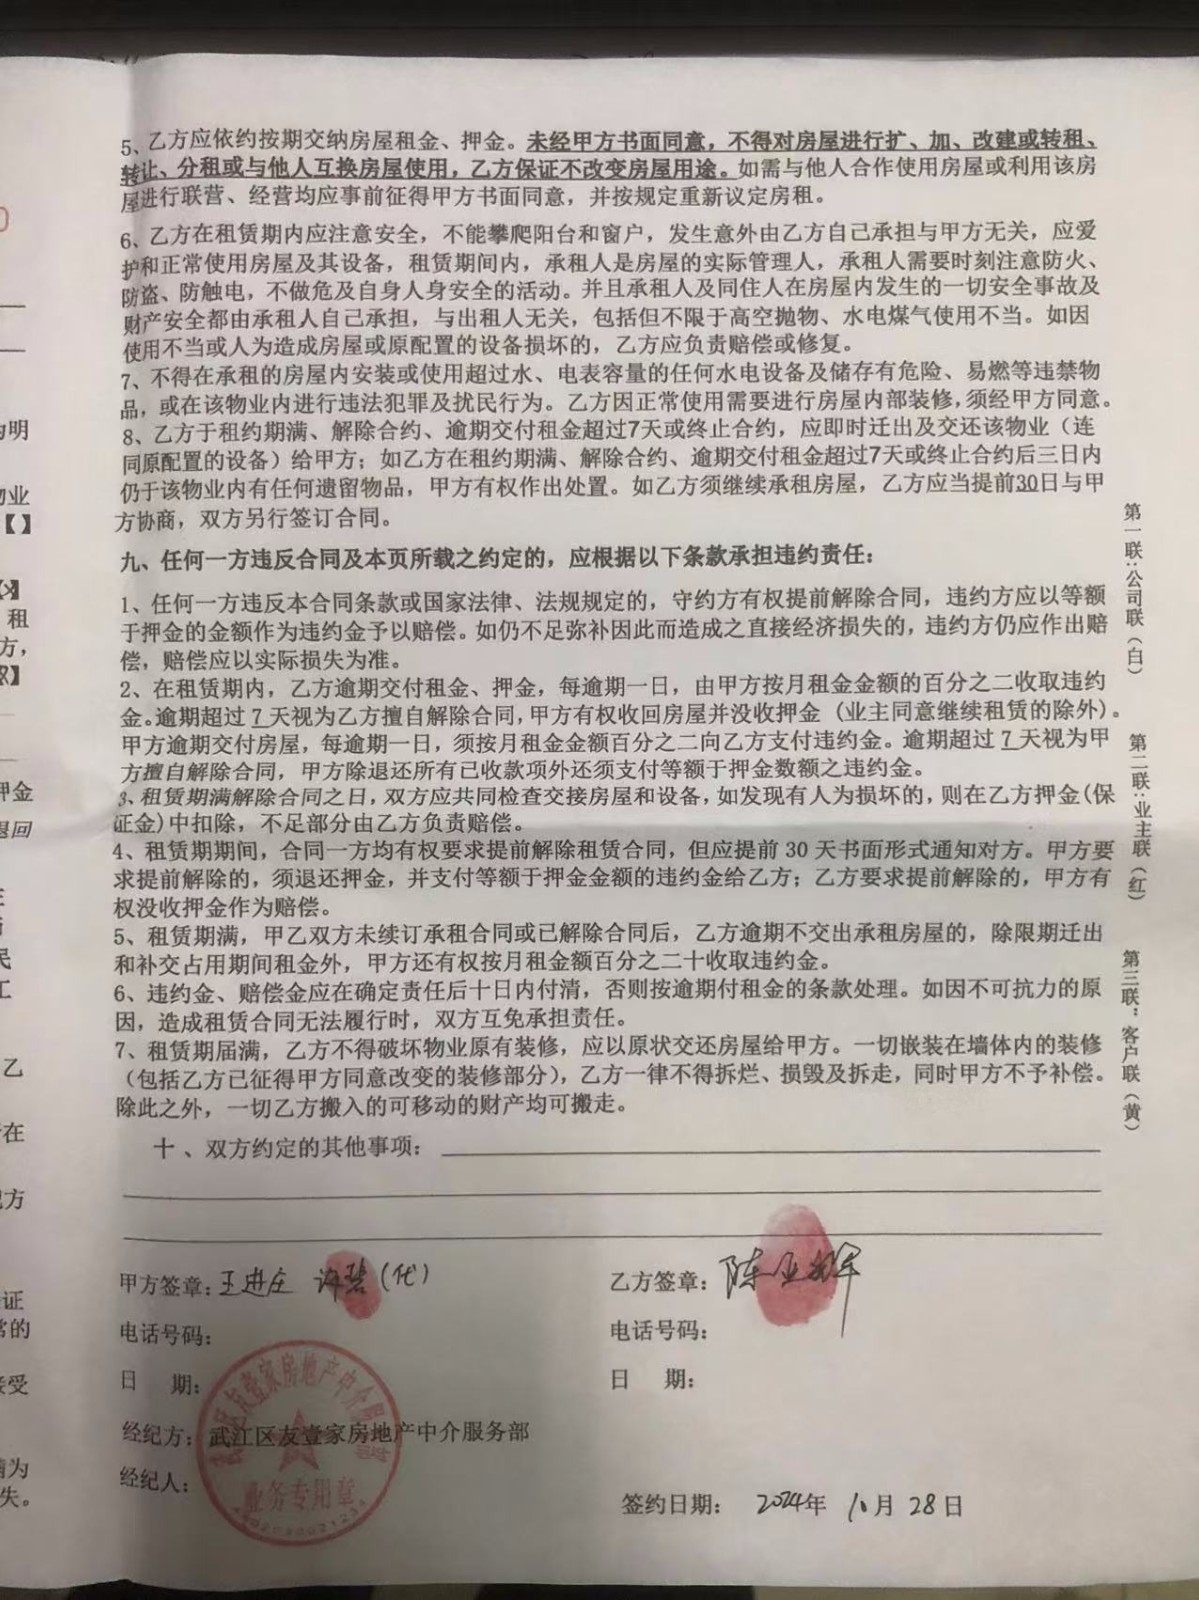 5、乙方应依约按期交纳房屋租金、押金。未经甲方书面同意，不得对房屋进行扩、加、改建或转租、
转让、分租或与他人互换房屋使用，乙方保证不改变房屋用途。如需与他人合作使用房屋或利用该房
屋进行联营、经营均应事前征得甲方书面同意，并按规定重新议定房租。
6、乙方在租赁期内应注意安全，不能攀爬阳台和窗户，发生意外由乙方自己承担与甲方无关，应爱
护和正常使用房屋及其设备，租赁期间内，承租人是房屋的实际管理人，承租人需要时刻注意防火、
防盗、防触电，不做危及自身人身安全的活动。并且承租人及同住人在房屋内发生的一切安全事故及
财产安全都由承租人自己承担，与出租人无关，包括但不限于高空抛物、水电煤气使用不当。如因
使用不当或人为造成房屋或原配置的设备损坏的，乙方应负责赔偿或修复。
7、不得在承租的房屋内安装或使用超过水、电表容量的任何水电设备及储存有危险、易燃等违禁物
品，或在该物业内进行违法犯罪及扰民行为。乙方因正常使用需要进行房屋内部装修，须经甲方同意。
8、乙方于租约期满、解除合约、逾期交付租金超过7天或终止合约，应即时迁出及交还该物业（连
同原配置的设备）给甲方；如乙方在租约期满、解除合约、逾期交付租金超过7天或终止合约后三日内
仍于该物业内有任何遗留物品，甲方有权作出处置。如乙方须继续承租房屋，乙方应当提前30日与甲
方协商，双方另行签订合同。
九、任何一方违反合同及本页所载之约定的，应根据以下条款承担违约责任：
1、任何一方违反本合同条款或国家法律、法规规定的，守约方有权提前解除合同，违约方应以等额
于押金的金额作为违约金予以赔偿。如仍不足弥补因此而造成之直接经济损失的，违约方仍应作出赔
偿，赔偿应以实际损失为准。
2、在租赁期内，乙方逾期交付租金、押金，每逾期一日，由甲方按月租金金额的百分之二收取违约
金。逾期超过 7 天视为乙方擅自解除合同，甲方有权收回房屋并没收押金（业主同意继续租赁的除外）。
甲方逾期交付房屋，每逾期一日，须按月租金金额百分之二向乙方支付违约金。逾期超过 7 天视为甲
方擅自解除合同，甲方除退还所有已收款项外还须支付等额于押金数额之违约金。
3、租赁期满解除合同之日，双方应共同检查交接房屋和设备，如发现有人为损坏的，则在乙方押金(保
证金)中扣除，不足部分由乙方负责赔偿。
4、租赁期期间，合同一方均有权要求提前解除租赁合同，但应提前 30 天书面形式通知对方。甲方要
求提前解除的，须退还押金，并支付等额于押金金额的违约金给乙方；乙方要求提前解除的，甲方有
权没收押金作为赔偿。
5、租赁期满，甲乙双方未续订承租合同或已解除合同后，乙方逾期不交出承租房屋的，除限期迁出
和补交占用期间租金外，甲方还有权按月租金额百分之二十收取违约金。
6、违约金、赔偿金应在确定责任后十日内付清，否则按逾期付租金的条款处理。如因不可抗力的原
因，造成租赁合同无法履行时，双方互免承担责任。
7、租赁期届满，乙方不得破坏物业原有装修，应以原状交还房屋给甲方。一切嵌装在墙体内的装修
（包括乙方已征得甲方同意改变的装修部分），乙方一律不得拆烂、损毁及拆走，同时甲方不予补偿。
除此之外，一切乙方搬入的可移动的财产均可搬走。
十、双方约定的其他事项：
甲方签章：王进庄 许碧（代）
乙方签章：陈亚辉
电话号码：
电话号码：
日 期：
日 期：
经纪方：武江区友壹家房地产中介服务部
经纪人：
业务专用章
签约日期： 2024年 10月 28日
第一联：公司联（白）
第二联：业主联（红）
第三联：客户联（黄）
为明
物业
【】
租
方，
押金
退回
民
工
乙
在
方
证
常的
接受
为
失。